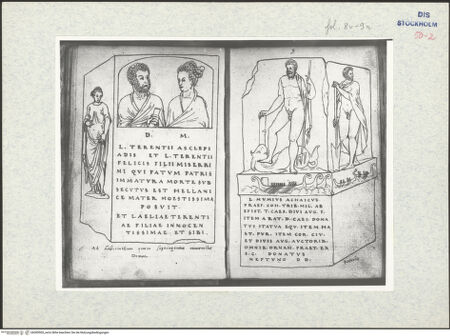 fol. 8v-9r
DIS
STOCKHOLM
50-2
D. M.
L. TERENTII ASCLEPI
ADIS ET L. TERENTII
FELICIS FILII MISERRI
MI QUI FATUM PATRIS
IMMATURA MORTE SUB
SECUTUS EST MELLANI
CE MATER MOESTISSIMA
POSUIT
ET LAELIAE TERENTI
AE FILIAE INNOCEN
TISSIMAE ET SIBI
Ad
Domum
9
L. MUMIUS ACHAICUS
PRAEF. COH. TRIB. MIL. AB
EPIST. T. CAES. DIVI AUG. F.
ITEM A RAT. D. CAES. DONA
TUS STATUA EQU. ITEM HA
ST. PUR. ITEM COR. CIV.
ET DIVIS AUG. AUCTORIB.
OMNIB. ORNAM. PRAET. EX
S. C. DONATUS
NEPTUNO D D